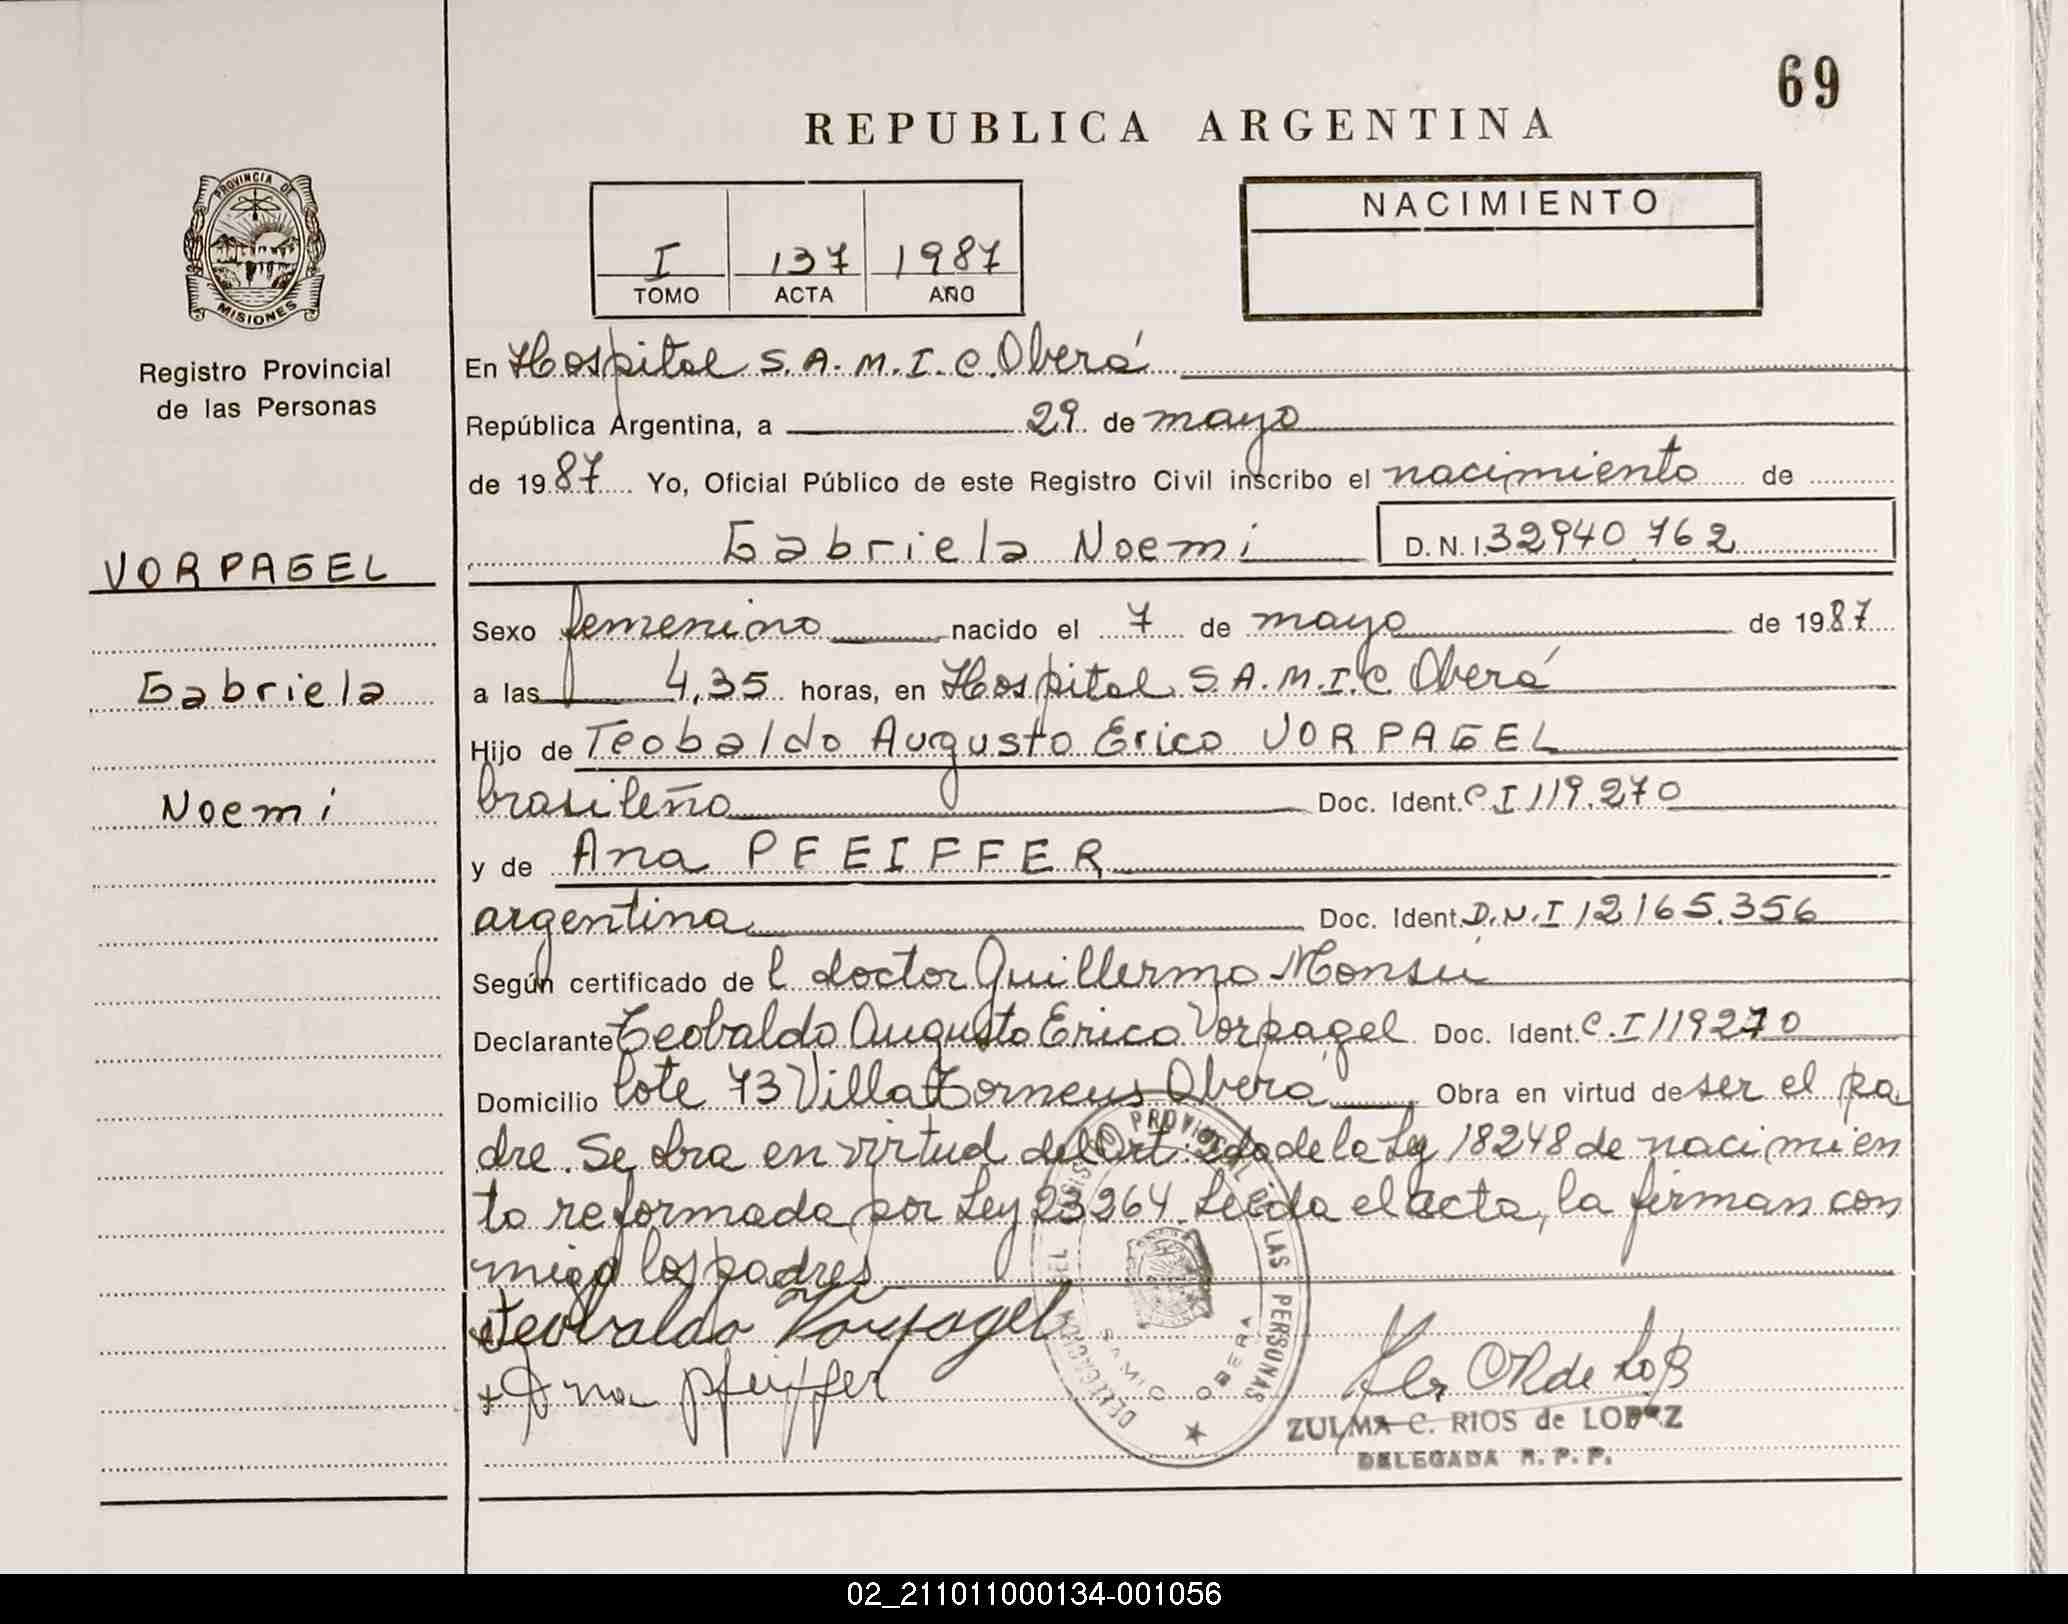 69
REPUBLICA ARGENTINA
PROVINCIA DE
MISIONES
Registro Provincial
de las Personas
I 137 1987
TOMO ACTA AÑO
NACIMIENTO
En Hospital S.A.M.I.C. Oberá
República Argentina, a 29 de mayo
de 1987 Yo, Oficial Público de este Registro Civil inscribo el nacimiento de
Gabriela Noemi D.N.I. 32940.762
VORPAGEL
Gabriela
Noemi
Sexo femenino nacido el 7 de mayo de 1987
a las 4,35 horas, en Hospital S.A.M.I.C. Oberá
Hijo de Teobaldo Augusto Erico VORPAGEL
brasileño Doc. Ident. C I 119.270
y de Ana PFEIFFER
argentina Doc. Ident. D.N.I 12165.356
Según certificado de l doctor Guillermo Monsu
Declarante Teobaldo Augusto Erico Vorpagel Doc. Ident. C.I 119270
Domicilio lote 73 Villa Oberá Obra en virtud de ser el pa
dre. Se obra en virtud del Art. 2do de la Ley 18248 de nacimien
to reformada por Ley 23264 Leida el acta, la firman con
migo los padres
Teobaldo Vorpagel
Ana Pfeiffer
REGISTRO PROVINCIAL DE LAS PERSONAS
DELEGACION
SAMIC OBERA
ZULMA C. RIOS de LOPEZ
DELEGADA R. P. P.
02_211011000134-001056